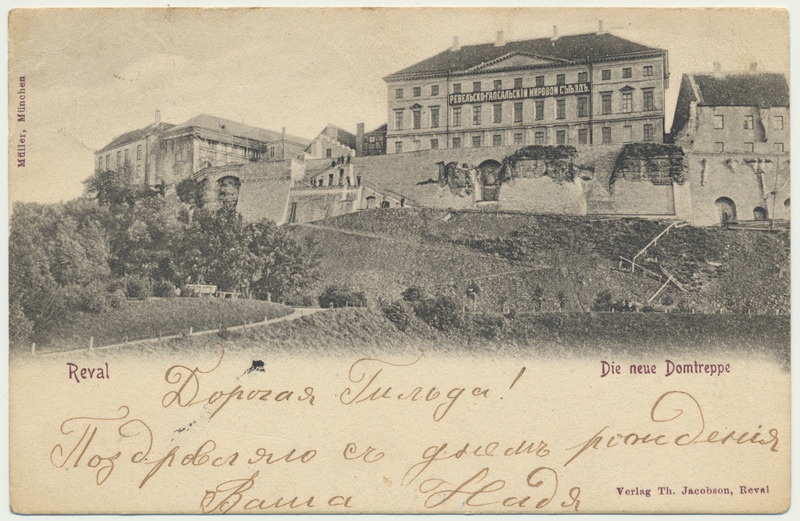 Müller, München
РЕВЕЛЬСКО-ГАПСАЛЬСКIЙ МИРОВОЙ СЪѢЗДЪ
Reval
Die neue Domtreppe
Дорогая Гильда!
Поздровляю съ днемъ рождения
Ваша Надя
Verlag Th. Jacobson, Reval